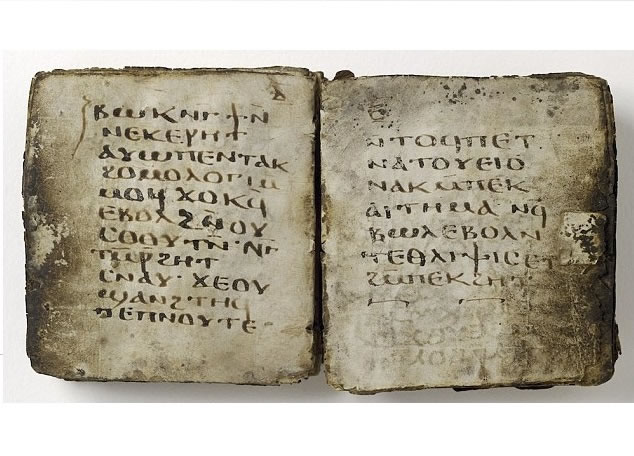 ⲃⲱⲕ ⲛⲅϯⲛ̄
ⲛⲉⲕⲉⲣⲏⲧ
ⲁⲩⲱⲡⲉⲛⲧⲁⲕ
ϩⲟⲙⲟⲗⲟⲅⲓⲙ̄
ⲙⲟϥ ϫⲟⲕϥ
ⲉⲃⲟⲗϩⲛⲟⲩ
ⲥⲟⲟⲩⲧⲛ̄·ⲛⲅ
ⲧⲙ̄ⲣϩⲏⲧ
ⲥⲛⲁⲩ·ϫⲉⲟⲩ
ϣⲁⲛϩⲧⲏϥ
ⲡⲉⲡⲛⲟⲩⲧⲉ·
ⲛ̄ⲧⲟϥⲡⲉⲧ
ⲛⲁⲧⲟⲩⲉⲓⲟ
ⲛⲁⲕⲙ̄ⲡⲉⲕ
ⲁⲓⲧⲏⲙⲁ ⲛϥ
ⲃⲱⲗⲉⲃⲟⲗⲛ
ⲧⲉⲑⲗⲓⲯⲓⲥⲉⲧ
ϩⲙ̄ⲡⲉⲕϩⲏⲧ